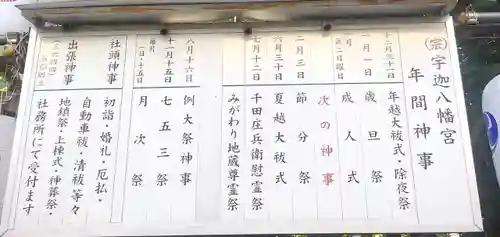 ㊪宇迦八幡宮
年間神事
十二月三十一日 年越大祓式・除夜祭
一月一日 歳旦祭
一月第二月曜日 成人式
次の神事
二月三日 節分祭
六月三十日 夏越大祓式
七月十二日 千田庄兵衛慰霊祭
みがわり地蔵尊霊祭
八月十六日 例大祭神事
十一月十五日 七五三祭
毎月一日・十五日 月次祭
社頭神事 初詣・婚礼・厄払・
自動車祓・清祓等々
出張神事 地鎮祭・上棟式・神葬祭・
社務所にて受付ます